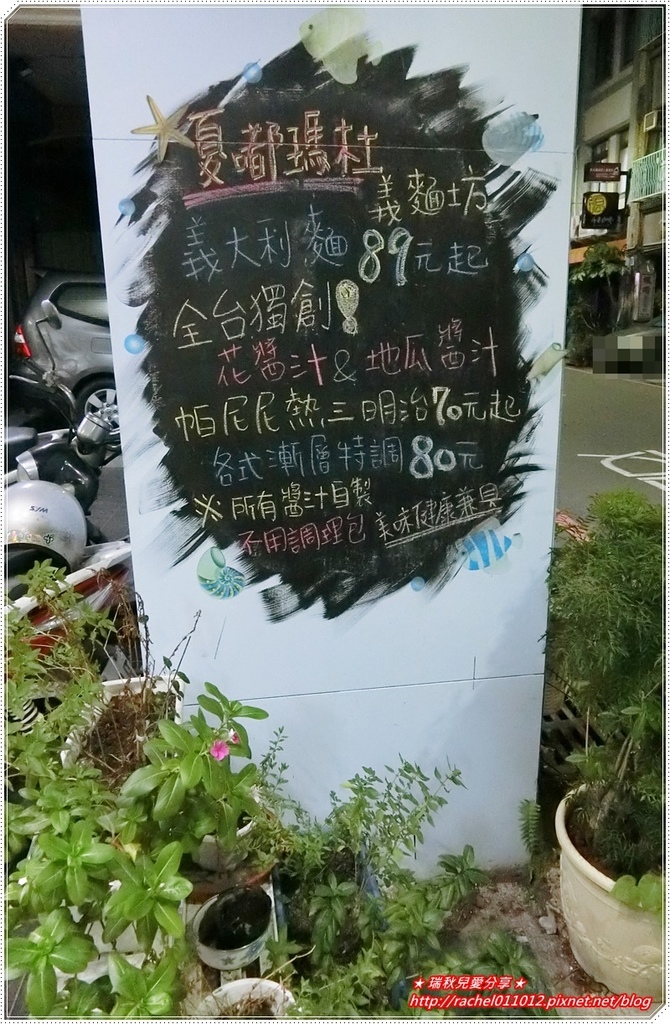 憂嘟瑪杜
義麵坊
義大利麵89元起
全台獨創!
花醬汁&地瓜醬汁
帕尼尼熱三明治70元起
各式漸層特調80元
※所有醬汁自製
不用調理包 美味健康兼具
★瑞秋兒愛分享★
http://rachel011012.pixnet.net/blog